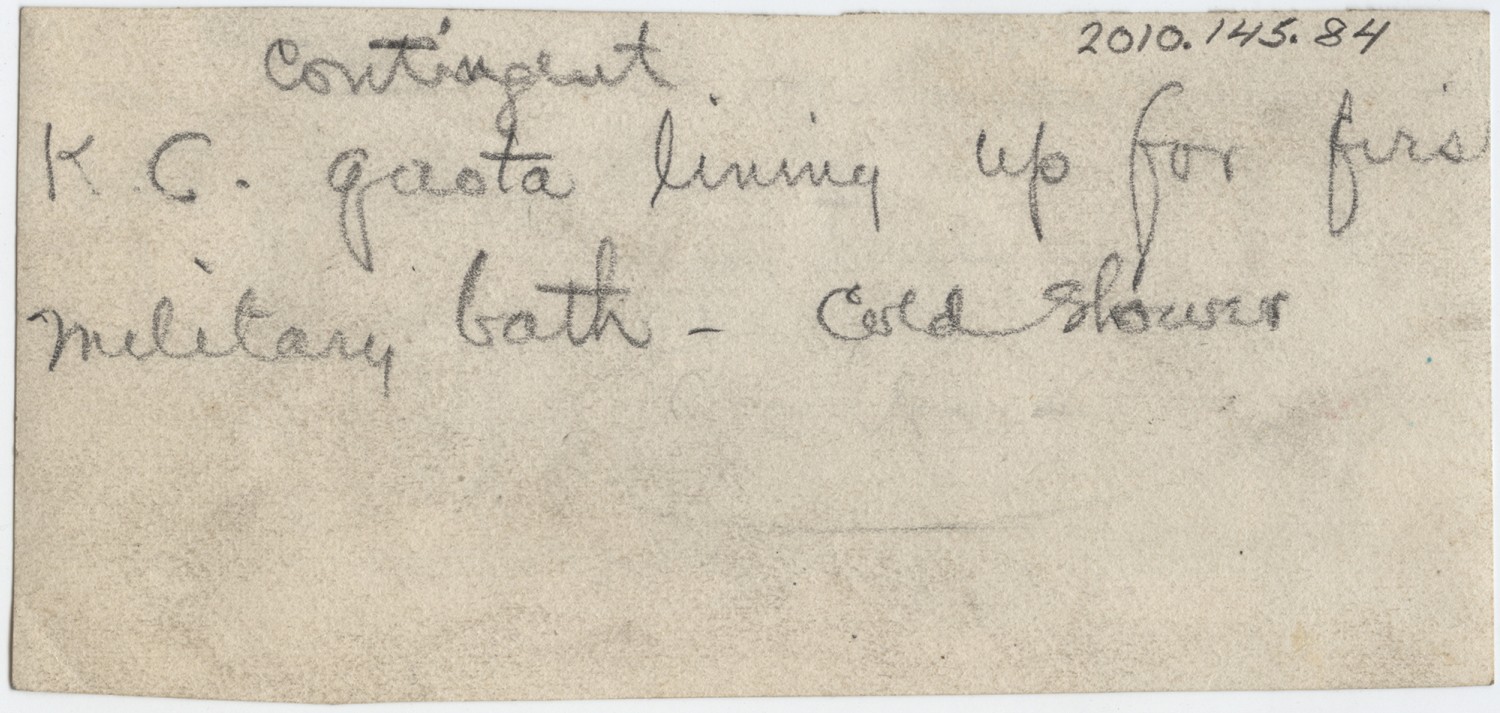 2010.145.84
contingent
K.C. quota lining up for firs
military bath - Cold shower